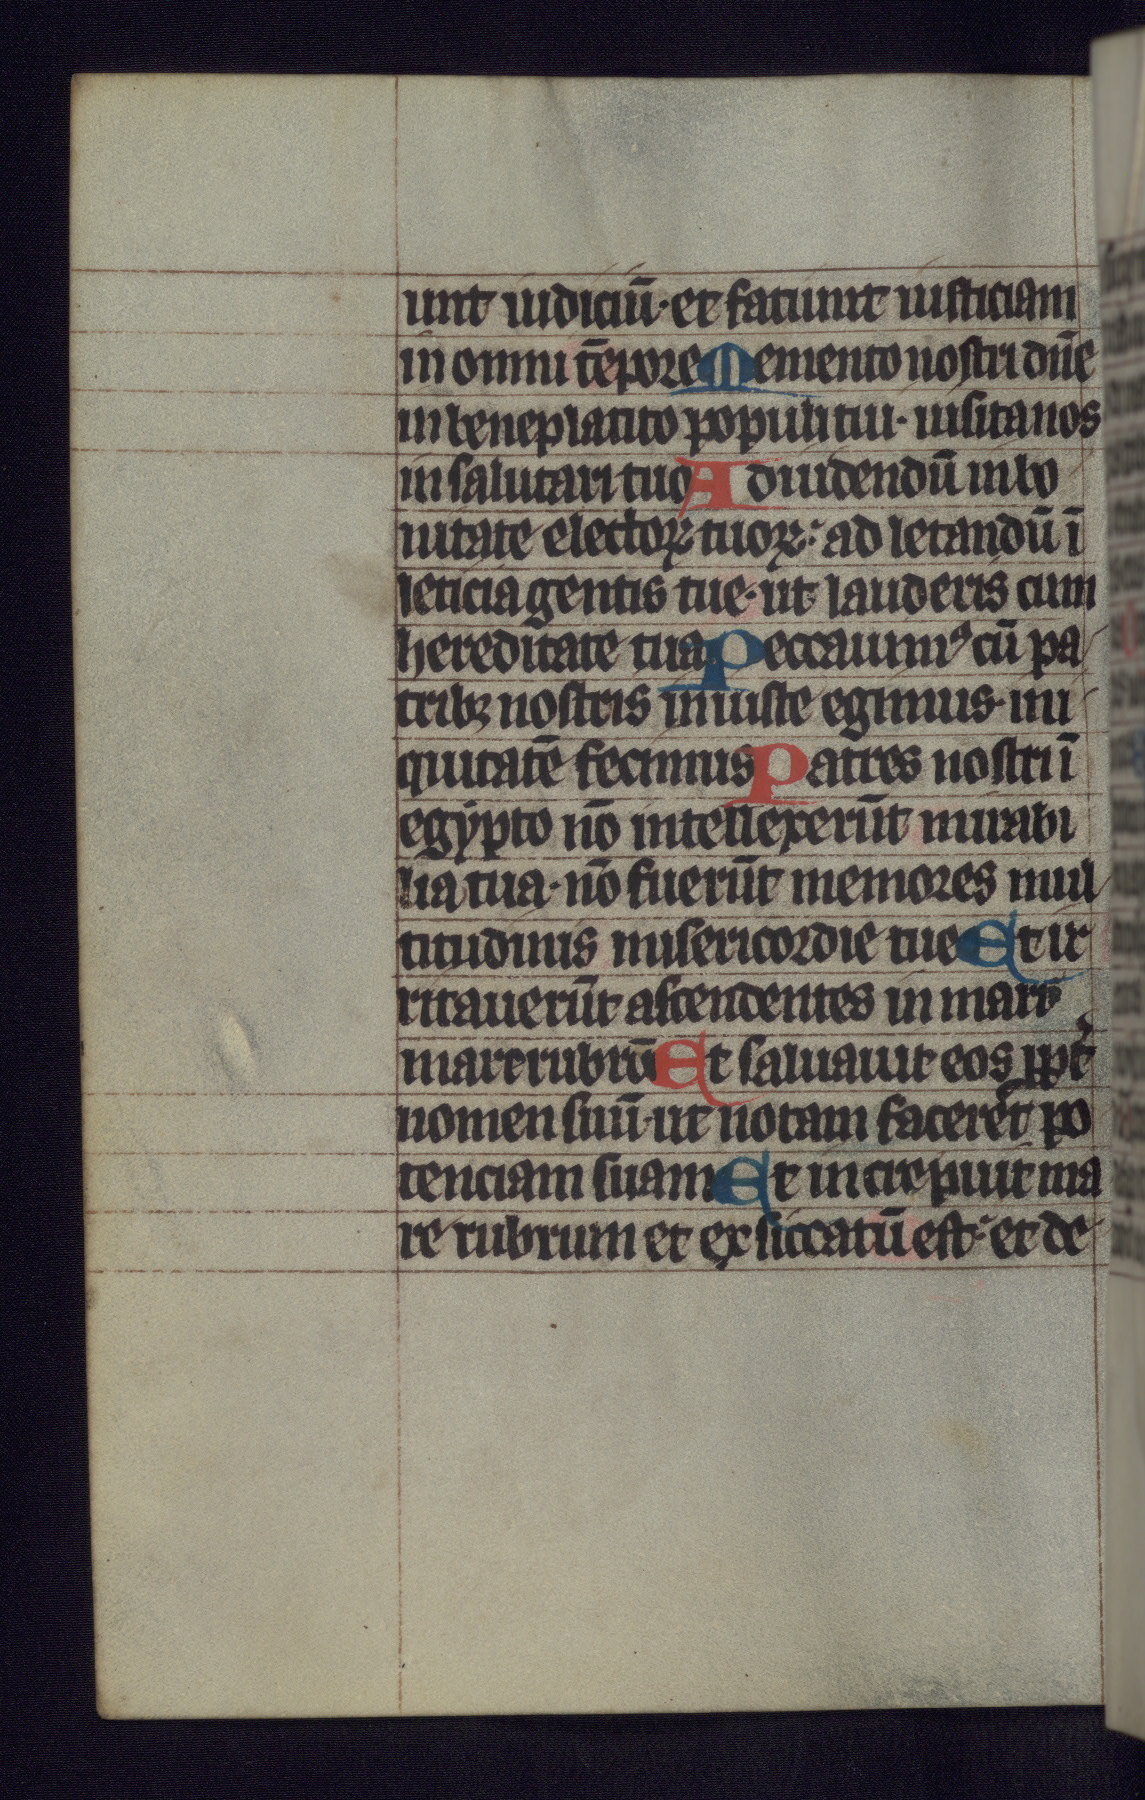 unt iudiciū· et faciunt iusticiam
in omni tēpore Memento nostri dn̄e
in beneplacito populi tui· uisita nos
in salutari tuo Ad uidendū in bo
nitate electoꝝ tuoꝝ: ad letandū ī
leticia gentis tue· ut lauderis cum
hereditate tua Peccauimꝰ cū pa
tribꝫ nostris iniuste egimus· ini
quitatē fecimus Patres nostri ī
egẏpto nō intellexerūt mirabi
lia tua· nō fuerūt memores mul
titudinis misericordie tue Et ir
ritauerūt ascendentes in mare
mare rubrū Et saluauit eos ꝓpt̄
nomen suū· ut notam faceret po
tenciam suam Et increpuit ma
re rubrum et exsiccatū est: et de